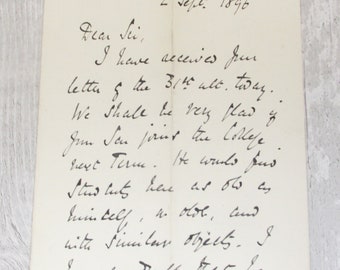 2 Sept. 1896
Dear Sir,
I have received your
letter of the 31st ult. today.
We shall be very glad if
your Son joins the College
next Term. He would find
Students here as old as
himself, or older, and
with similar objects. I